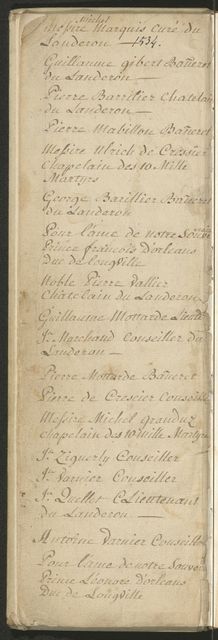 Michel
Messire Marquis Curé du
Landeron — 1534.
Guilliaume gibert Baneret
du Landeron —
Pierre Barillier Chatelain
du Landeron —
Pierre Mabillon Baneret
Messire Ulrich de Cressier
Chapelain des 10 Mille
Martyrs
George Barillier Baneret
du Landeron
Pour l'ame de notre Souverain
Prince francois D'orleans
duc de longville
Noble Pierre Vallier
Chatelain du Landeron
Guilliaume Mottarde Lieut.
Jr. Marchand Conseiller du
Landeron —
Pierre Mottarde Baneret
Pierre de Cressier Conseiller
Messire Michel granduz
chapelain des 10 mille Martyrs
Jr. Ziguerly Conseiller
Jr. Varnier Conseiller
Jr. Quellet C Lieutenant
du Landeron —
Antoine Varnier Conseiller
Pour l'ame de notre Souverain
Prince Leonore D'orleans
Duc de Longville